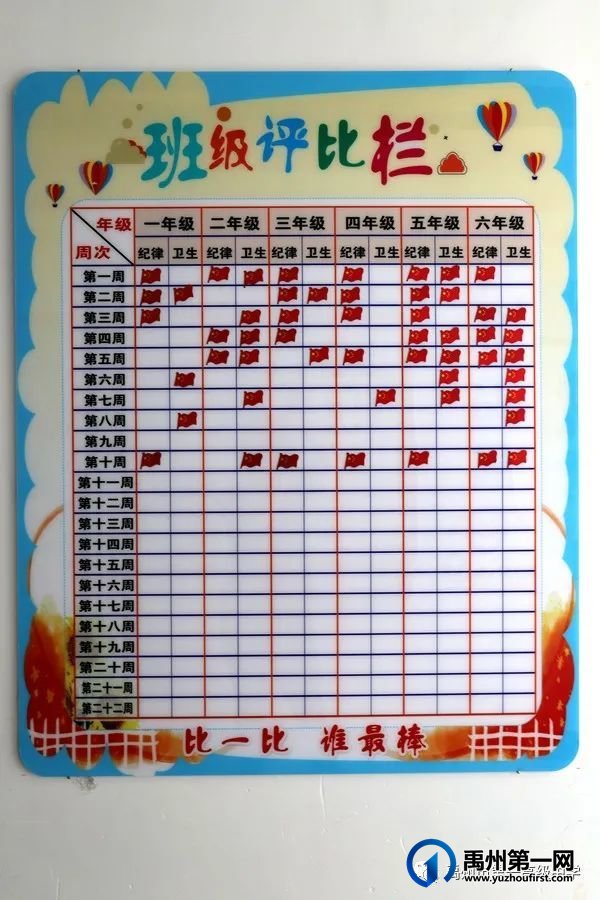 班级评比栏
年级 一年级 二年级 三年级 四年级 五年级 六年级
周次 纪律 卫生 纪律 卫生 纪律 卫生 纪律 卫生 纪律 卫生 纪律 卫生
第一周
第二周
第三周
第四周
第五周
第六周
第七周
第八周
第九周
第十周
第十一周
第十二周
第十三周
第十四周
第十五周
第十六周
第十七周
第十八周
第十九周
第二十周
第二十一周
第二十二周
比一比 谁最棒
禹州第一网
www.yuzhoufirst.com